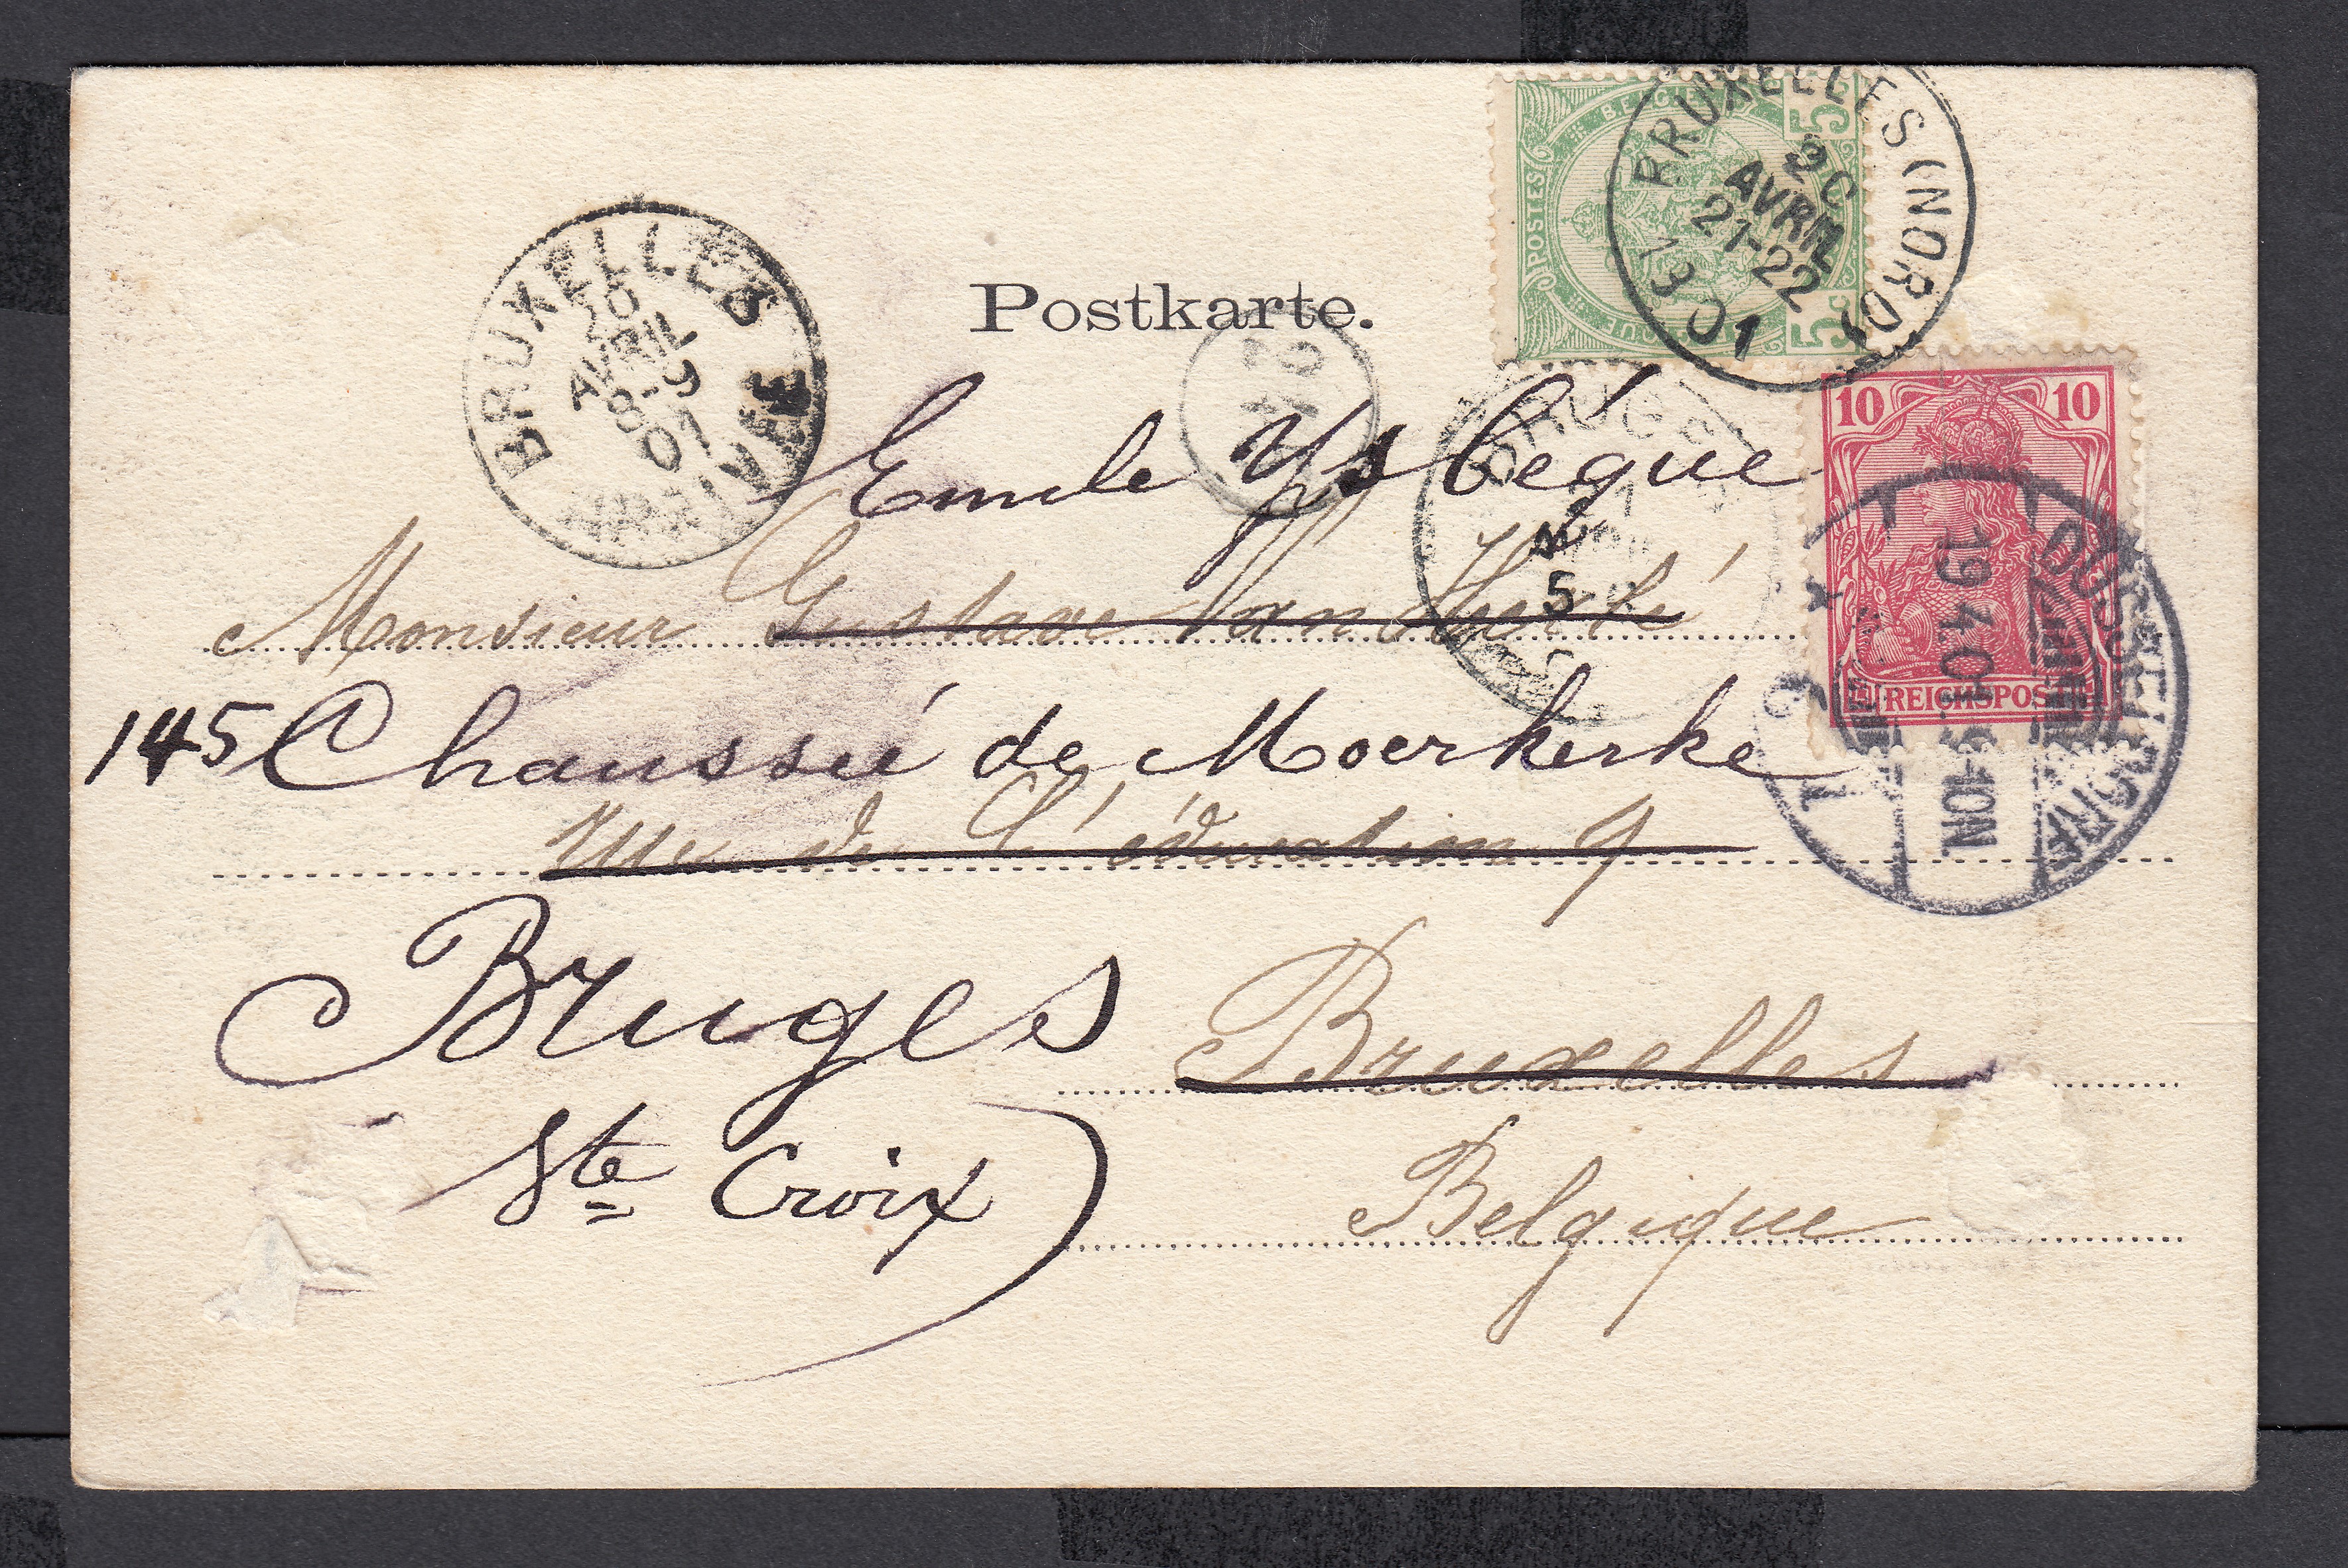 BELGIQUE
POSTES
5c
5c
BRUXELLES (NORD)
20
AVRIL
21-22
1901
BRUXELLES
20
AVRIL
8-9
01
Postkarte.
10 10
REICHSPOST
19.4.01. 9-10N.
1
BRUGES
21
5
Emile Ysbéque
Monsieur Gustave
145 Chaussée de Moerkerke
rue de l'éducation 9
Bruges
Bruxelles
Ste Croix
Belgique